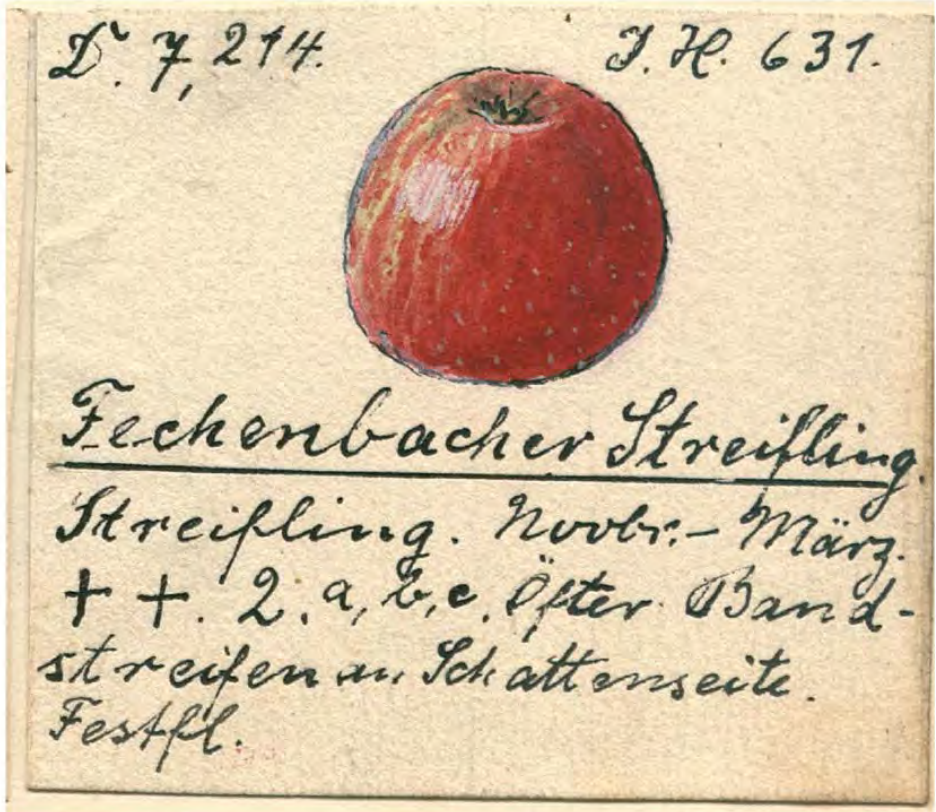 D. 7, 214. J. H. 631.
Fechenbacher Streifling.
Streifling. Novbr. - März.
++. 2. a, b, c. Öfter Band-
streifen an Schattenseite.
Festfl.